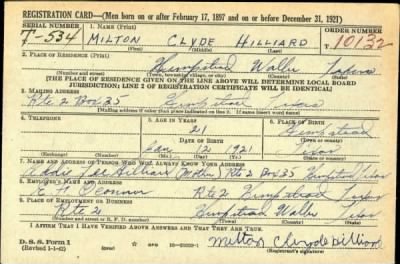 REGISTRATION CARD—(Men born on or after February 17, 1897 and on or before December 31, 1921)
SERIAL NUMBER 1. NAME (Print) ORDER NUMBER
T-534 MILTON CLYDE HILLIARD 10132
(First) (Middle) (Last)
2. PLACE OF RESIDENCE (Print)
Hempstead Waller Texas
(Number and street) (Town, township, village, or city) (County) (State)
[THE PLACE OF RESIDENCE GIVEN ON THE LINE ABOVE WILL DETERMINE LOCAL BOARD
JURISDICTION; LINE 2 OF REGISTRATION CERTIFICATE WILL BE IDENTICAL]
3. MAILING ADDRESS
Rte 2 Box 35 Hempstead Texas
[Mailing address if other than place indicated on line 2. If same insert word same]
4. TELEPHONE 5. AGE IN YEARS 6. PLACE OF BIRTH
21 Hempstead
DATE OF BIRTH (Town or county)
Jan 12 1921 Texas
(Exchange) (Number) (Mo.) (Day) (Yr.) (State or country)
7. NAME AND ADDRESS OF PERSON WHO WILL ALWAYS KNOW YOUR ADDRESS
Lee Hilliard (Mother) Rte 2 Box 35 Hempstead Texas
8. EMPLOYER'S NAME AND ADDRESS
Rte 2 Hempstead Texas
9. PLACE OF EMPLOYMENT OR BUSINESS
Rte 2 Hempstead Waller Texas
(Number and street or R. F. D. number) (Town) (County) (State)
I AFFIRM THAT I HAVE VERIFIED ABOVE ANSWERS AND THAT THEY ARE TRUE.
D. S. S. Form 1
(Revised 1-1-42) (over) Milton Clyde Hilliard
(Registrant's signature)